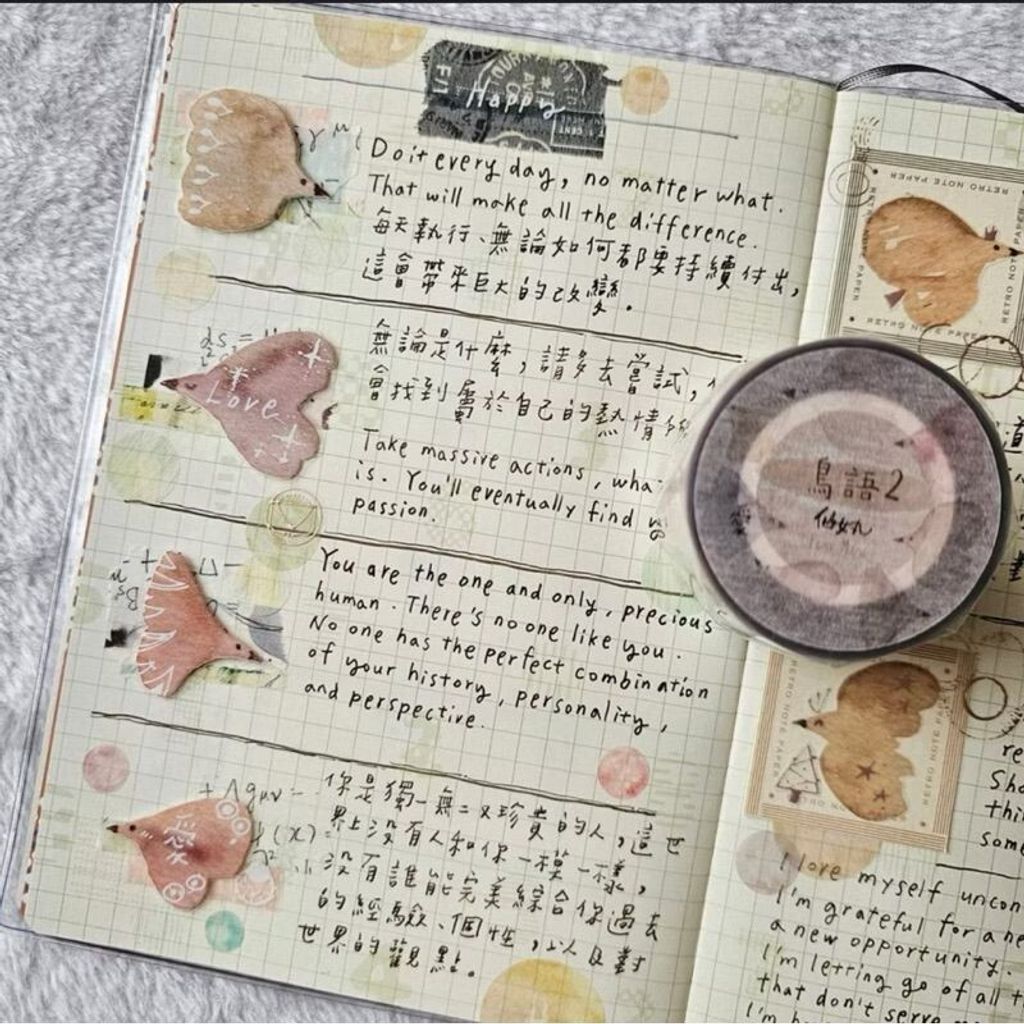 Happy
Do it every day, no matter what.
That will make all the difference.
每天執行、無論如何都要持續付出，
這會帶來巨大的改變。
無論是什麼，請多去嘗試，
會找到屬於自己的熱情
Love
Take massive actions, wha
is. You'll eventually find
passion.
You are the one and only, precious
human. There's no one like you.
No one has the perfect combination
of your history, personality,
and perspective.
愛
你是獨一無二又珍貴的人，這世
界上沒有人和你一模一樣，
沒有誰能完美綜合你過去
的經驗、個性，以及對
世界的觀點。
RETRO NOTE PAPER
RETRO NOTE PAPER
RETRO NOTE PAPER
鳥語2
道
RETRO NOTE PAPER
RETRO NOTE PAPER
re
Sho
thi
some
I love myself uncon
I'm grateful for a ne
a new opportunity.
I'm letting go of all t
that don't serve